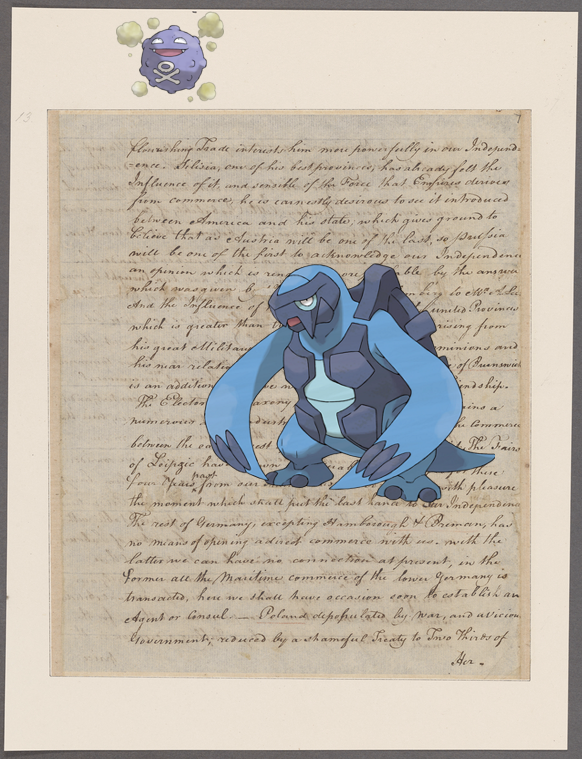 13
flourishing Trade interests him more powerfully in our Independ
=ence. Silisia, one of his best provinces, has already felt the
Influence of it, and sensible of the Force that Empires derive
from commerce, he is earnestly desirous to see it introduced
between America and his state, which gives ground to
believe that as Austria will be one of the last, so Prussia
will be one of the first to acknowledge our Independence
an opinion which is by the answer
which was given by to Mr. A. Lee
And the Influence of united Provinces
which is greater than rising from
his great Military minions and
his near relatio of Brunswick
is an addition ndship.
The Elector axony ins a
numerous the commerce
between the The Fairs
of Leipzic have there
four years past from our with pleasure
the moment which shall put the last hand to our Independence
The rest of Germany, excepting Hamborough & Breman, has
no means of opening a direct commerce with us. with the
latter we can have no connection at present, in the
Former all the Maritime commerce of the lower Germany is
transacted, here we shall have occasion soon to establish an
Agent or Consul — Poland depopulated by war, and a viciou
Government, reduced by a shameful Treaty to Two Thirds of
Her -